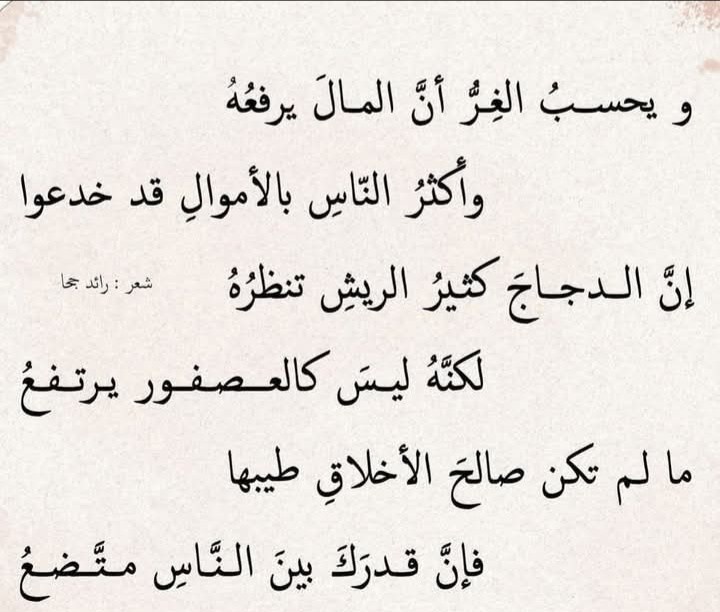 و يحسبُ الغِرُّ أنَّ المالَ يرفعُهُ
وأكثرُ النّاسِ بالأموالِ قد خدعوا
إنَّ الدجاجَ كثيرُ الريشِ تنظرُهُ
شعر : رائد جحا
لكنَّهُ ليسَ كالعصفور يرتفعُ
ما لم تكن صالحَ الأخلاقِ طيبها
فإنَّ قدرَكَ بينَ النَّاسِ متَّضعُ